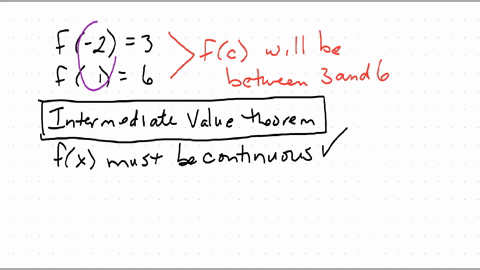 f(-2) = 3
f(1) = 6
f(c) will be
between 3 and 6
Intermediate Value theorem
f(x) must be continuous ✓